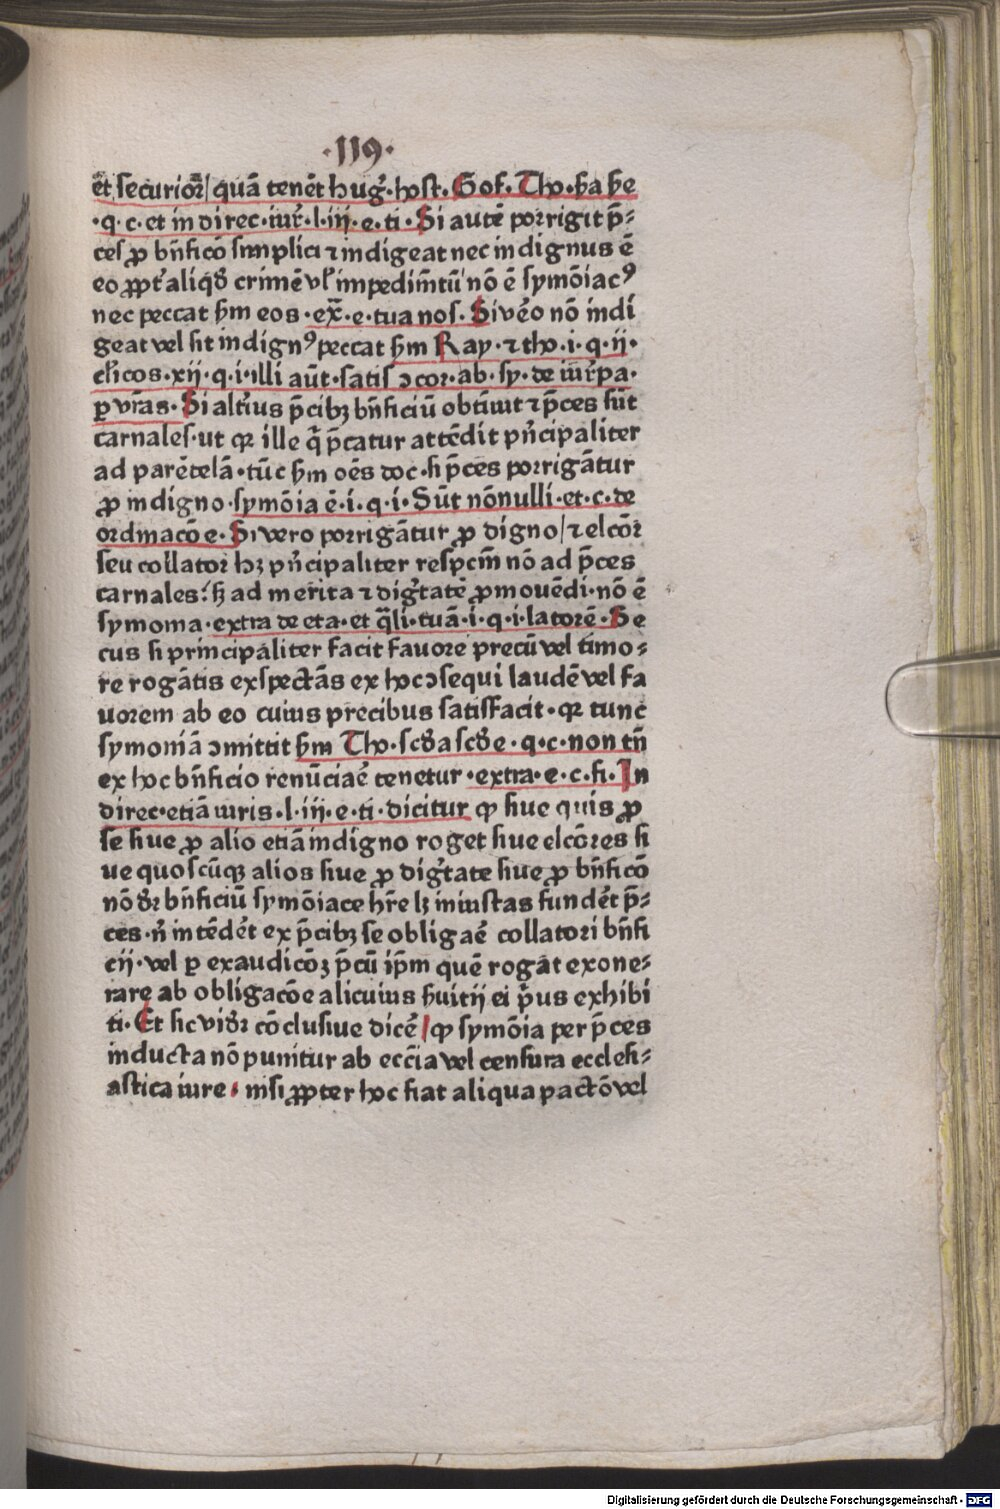 ·119·
et̄ securior̄/ quā tenēt hug̉·host. Gof. Tho. ẜa ẜe
·q·c·et in direc·iur̄·l·iij·e·ti·Si autē porrigit p̄⸗
ces ꝓ bn̄ficō simplici ⁊ indigeat nec indignus ē
eo ꝓpt̄ aliqd̄ crimē vl̄ impedim̄tū nō ē symōiacꝰ
nec peccat ẜm eos·ex̄·e·tua nos. Si vēo nō indi
geat vel sit indignꝰ peccat ẜm Ray·⁊ tho·i·q·ij·
cl̄icos·xij·q·i·illi aūt·satis ↄcor·ab·sy·de iur̄ pa·
ꝑ vr̄as·Si altīus p̄cibꝫ bn̄ficiū obtinuit ⁊ p̄ces sūt
carnales·ut qꝛ ille q̄ p̄catur attēdit pn̄cipaliter
ad parētelā·tūc ẜm oēs doc·si p̄ces porrigātur
ꝓ indigno·symōia ē·i·q·i·Sūt nōnulli·et·c·de
ordinacōe·Si vero porrigātur ꝓ digno/⁊ elcōr
seu collator hꝫ pn̄cipaliter respcm̄ nō ad p̄ces
carnales:ẜꝫ ad merita ⁊ dig̉tatē ꝓmouēdi·nō ē
symonia·extra de eta·et q̄li·tuā·i·q·i·latorē·Se
cus si principaliter facit fauore precū vel timo⸗
re rogātis exspectās ex hoc ↄsequi laudē vel fa
uorem ab eo cuius precibus satisfacit·qꝛ tunc
symoniā ↄmittit ẜm Tho·scd̄a scd̄e·q·c·non tn̄
ex hoc bn̄ficio renūciaē tenetur·extra·e·c·fi·In
direc·etiā iuris·l·iij·e·ti·dicitur ꝙ siue quis ꝓ
se siue ꝓ alio etiā indigno roget siue elcōres si
ue quoscūqꝫ alios siue ꝓ dig̉tate siue ꝓ bn̄ficō
nō dr̄ bn̄ficiū symōiace hr̄e lꝫ iniustas fundēt p̄⸗
ces·n̄ intēdēt ex p̄cibꝫ se obligaē collatori bn̄fi
cij·vel ꝑ exaudicōꝫ p̄cū ip̄m quē rogāt exone⸗
rare ab obligacōe alicuius ẜuitij ei p̄us exhibi
ti·Et sic vid̄r cōclusiue dicē/ꝙ symōia per p̄ces
inducta nō punitur ab eccīia vel censura ecclesi⸗
astica iure·nisi ꝓpter hoc fiat aliqua pactō vel
Digitalisierung gefördert durch die Deutsche Forschungsgemeinschaft - DFG